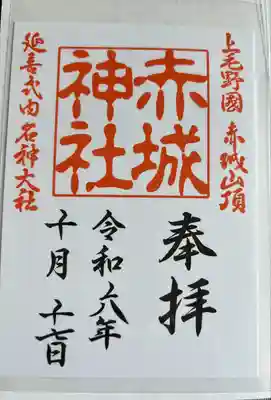 上毛野國 赤城山頂
赤城
神社
延喜式内名神大社
奉拝
令和六年
十月 十七日